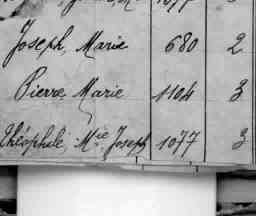 Joseph, Marie 680 2
Pierre, Marie 1104 3
Théophile, Mie Joseph 1077 3